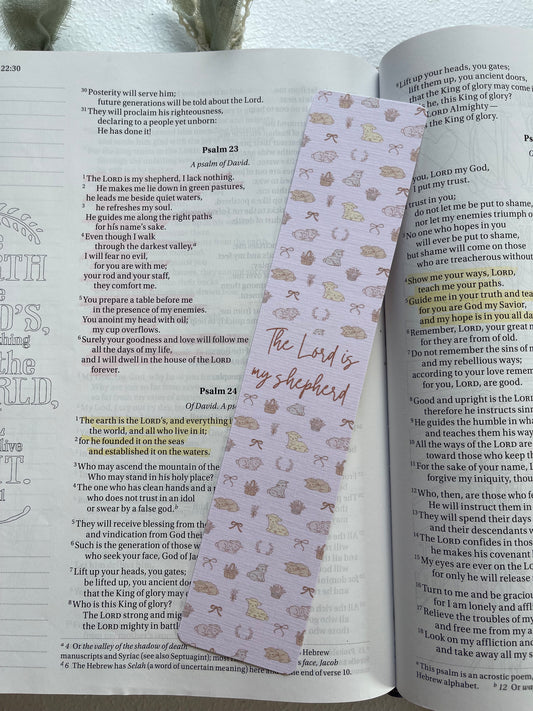 22:30
30 Posterity will serve him;
future generations will be told about the Lord.
31 They will proclaim his righteousness,
declaring to a people yet unborn:
He has done it!
Psalm 23
A psalm of David.
1 The LORD is my shepherd, I lack nothing.
2 He makes me lie down in green pastures,
he leads me beside quiet waters,
3 he refreshes my soul.
He guides me along the right paths
for his name's sake.
4 Even though I walk
through the darkest valley,a
I will fear no evil,
for you are with me;
your rod and your staff,
they comfort me.
5 You prepare a table before me
in the presence of my enemies.
You anoint my head with oil;
my cup overflows.
6 Surely your goodness and love will follow me
all the days of my life,
and I will dwell in the house of the LORD
forever.
Psalm 24
Of David. A
1 The earth is the LORD's, and everything
the world, and all who live in it;
2 for he founded it on the seas
and established it on the waters.
3 Who may ascend the mountain of the
Who may stand in his holy place?
4 The one who has clean hands and a
who does not trust in an idol
or swear by a false god.b
5 They will receive blessing from the
and vindication from God
6 Such is the generation of those
who seek your face, God of
7 Lift up your heads, you gates;
be lifted up, you ancient
that the King of glory may
8 Who is this King of glory?
The LORD strong and
the LORD mighty in
a 4 Or the valley of the shadow of death
manuscripts and Syriac (see also Septuagint); most
a 6 The Hebrew has Selah (a word of uncertain meaning) here and at the end of verse 10.
face, Jacob
The Lord is
my shepherd
9 Lift up your heads, you gates;
lift them up, you ancient doors,
that the King of glory may come
he, this King of glory?
LORD Almighty—
the King of glory.
Psalm
you, LORD my God,
I put my trust.
trust in you;
do not let me be put to shame,
nor let my enemies triumph
3 No one who hopes in you
will ever be put to shame,
but shame will come on those
who are treacherous without
4 Show me your ways, LORD,
teach me your paths.
5 Guide me in your truth and
for you are God my Savior,
and my hope is in you all
6 Remember, LORD, your great
for they are from of old.
7 Do not remember the sins of
and my rebellious ways;
according to your love
for you, LORD, are good.
8 Good and upright is the LORD
therefore he instructs
9 He guides the humble in
and teaches them his way.
10 All the ways of the LORD are
toward those who keep
11 For the sake of your name,
forgive my iniquity,
12 Who, then, are those who
He will instruct them in
13 They will spend their days
and their descendants
14 The LORD confides in those
he makes his covenant
15 My eyes are ever on the
for only he will release
16 Turn to me and be gracious
for I am lonely and
17 Relieve the troubles of my
and free me from my
18 Look on my affliction and
and take away all my
a This psalm is an acrostic poem,
Hebrew alphabet. b 12 Or